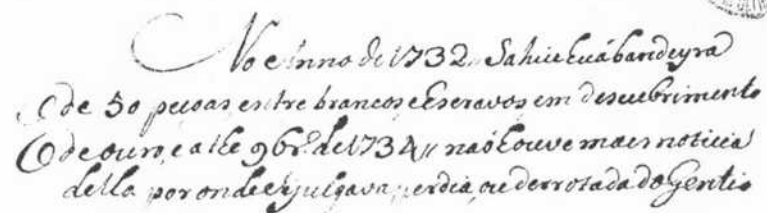 No Anno de 1732 Sahio huã bandeyra
de 50 pesoas entre brancos e escravos em descubrimento
de ouro, e athe 9br.º de 1734 // naõ houve mais noticia
della por onde se julgava perdida, ou derrotada do Gentio